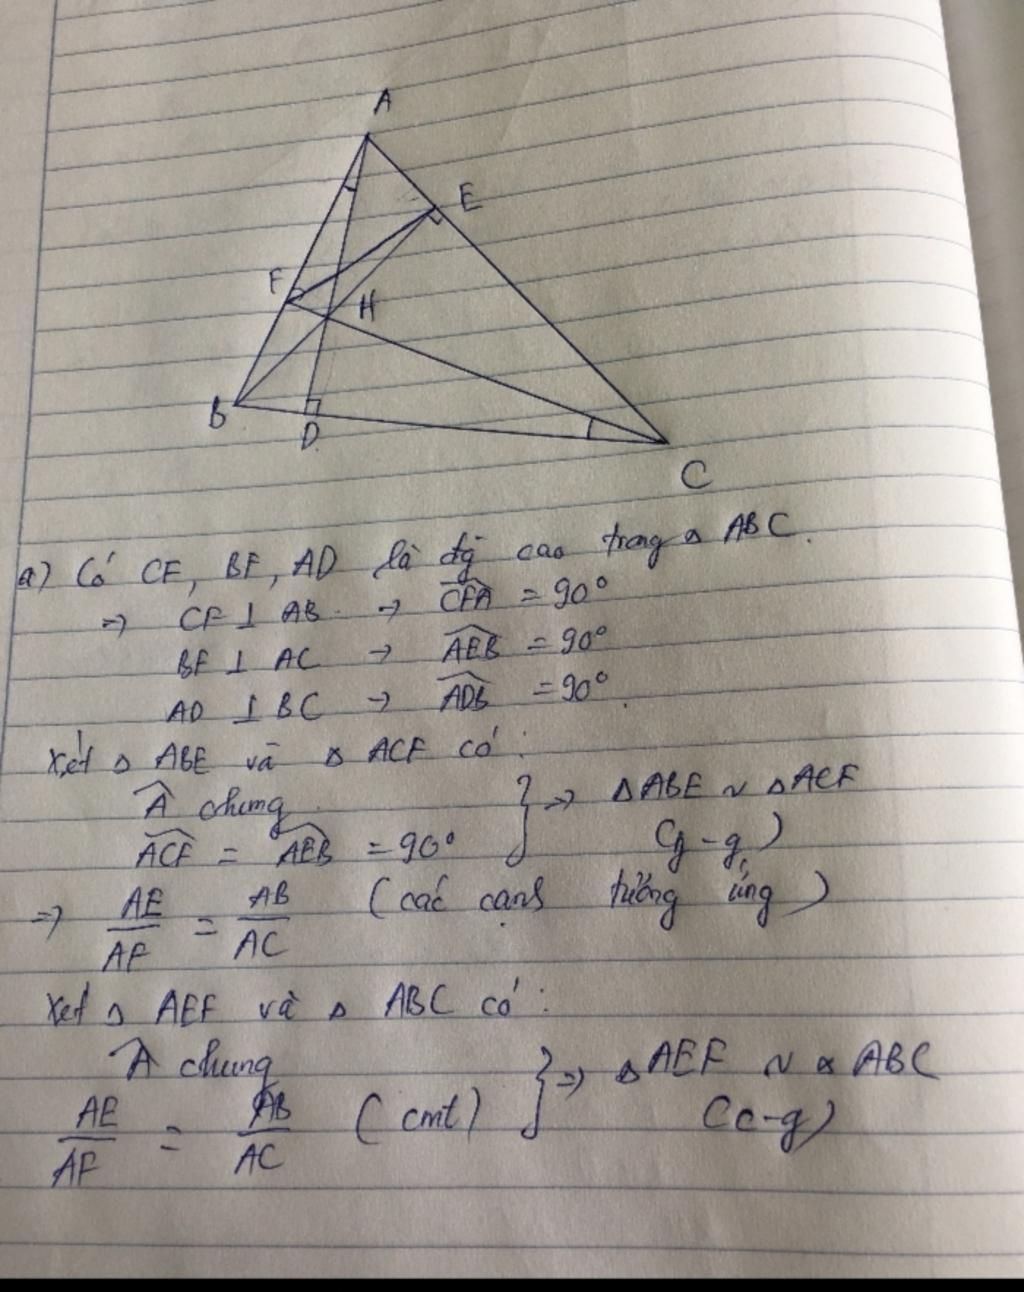 A
E
F
H
B
D
C
a) Có CF, BE, AD là đg cao trong △ ABC.
=> CF ⊥ AB -> \widehat{CFA} = 90°
BE ⊥ AC -> \widehat{AEB} = 90°
AD ⊥ BC -> \widehat{ADB} = 90°
Xét △ ABE và △ ACF có:
\widehat{A} chung } => △ABE ~ △ACF
\widehat{ACF} = \widehat{AEB} = 90° (g-g)
=> AE/AF = AB/AC (các cạnh tương ứng)
Xét △ AEF và △ ABC có:
\widehat{A} chung } => △AEF ~ △ABC
AE/AF = AB/AC (cmt) (c-g)